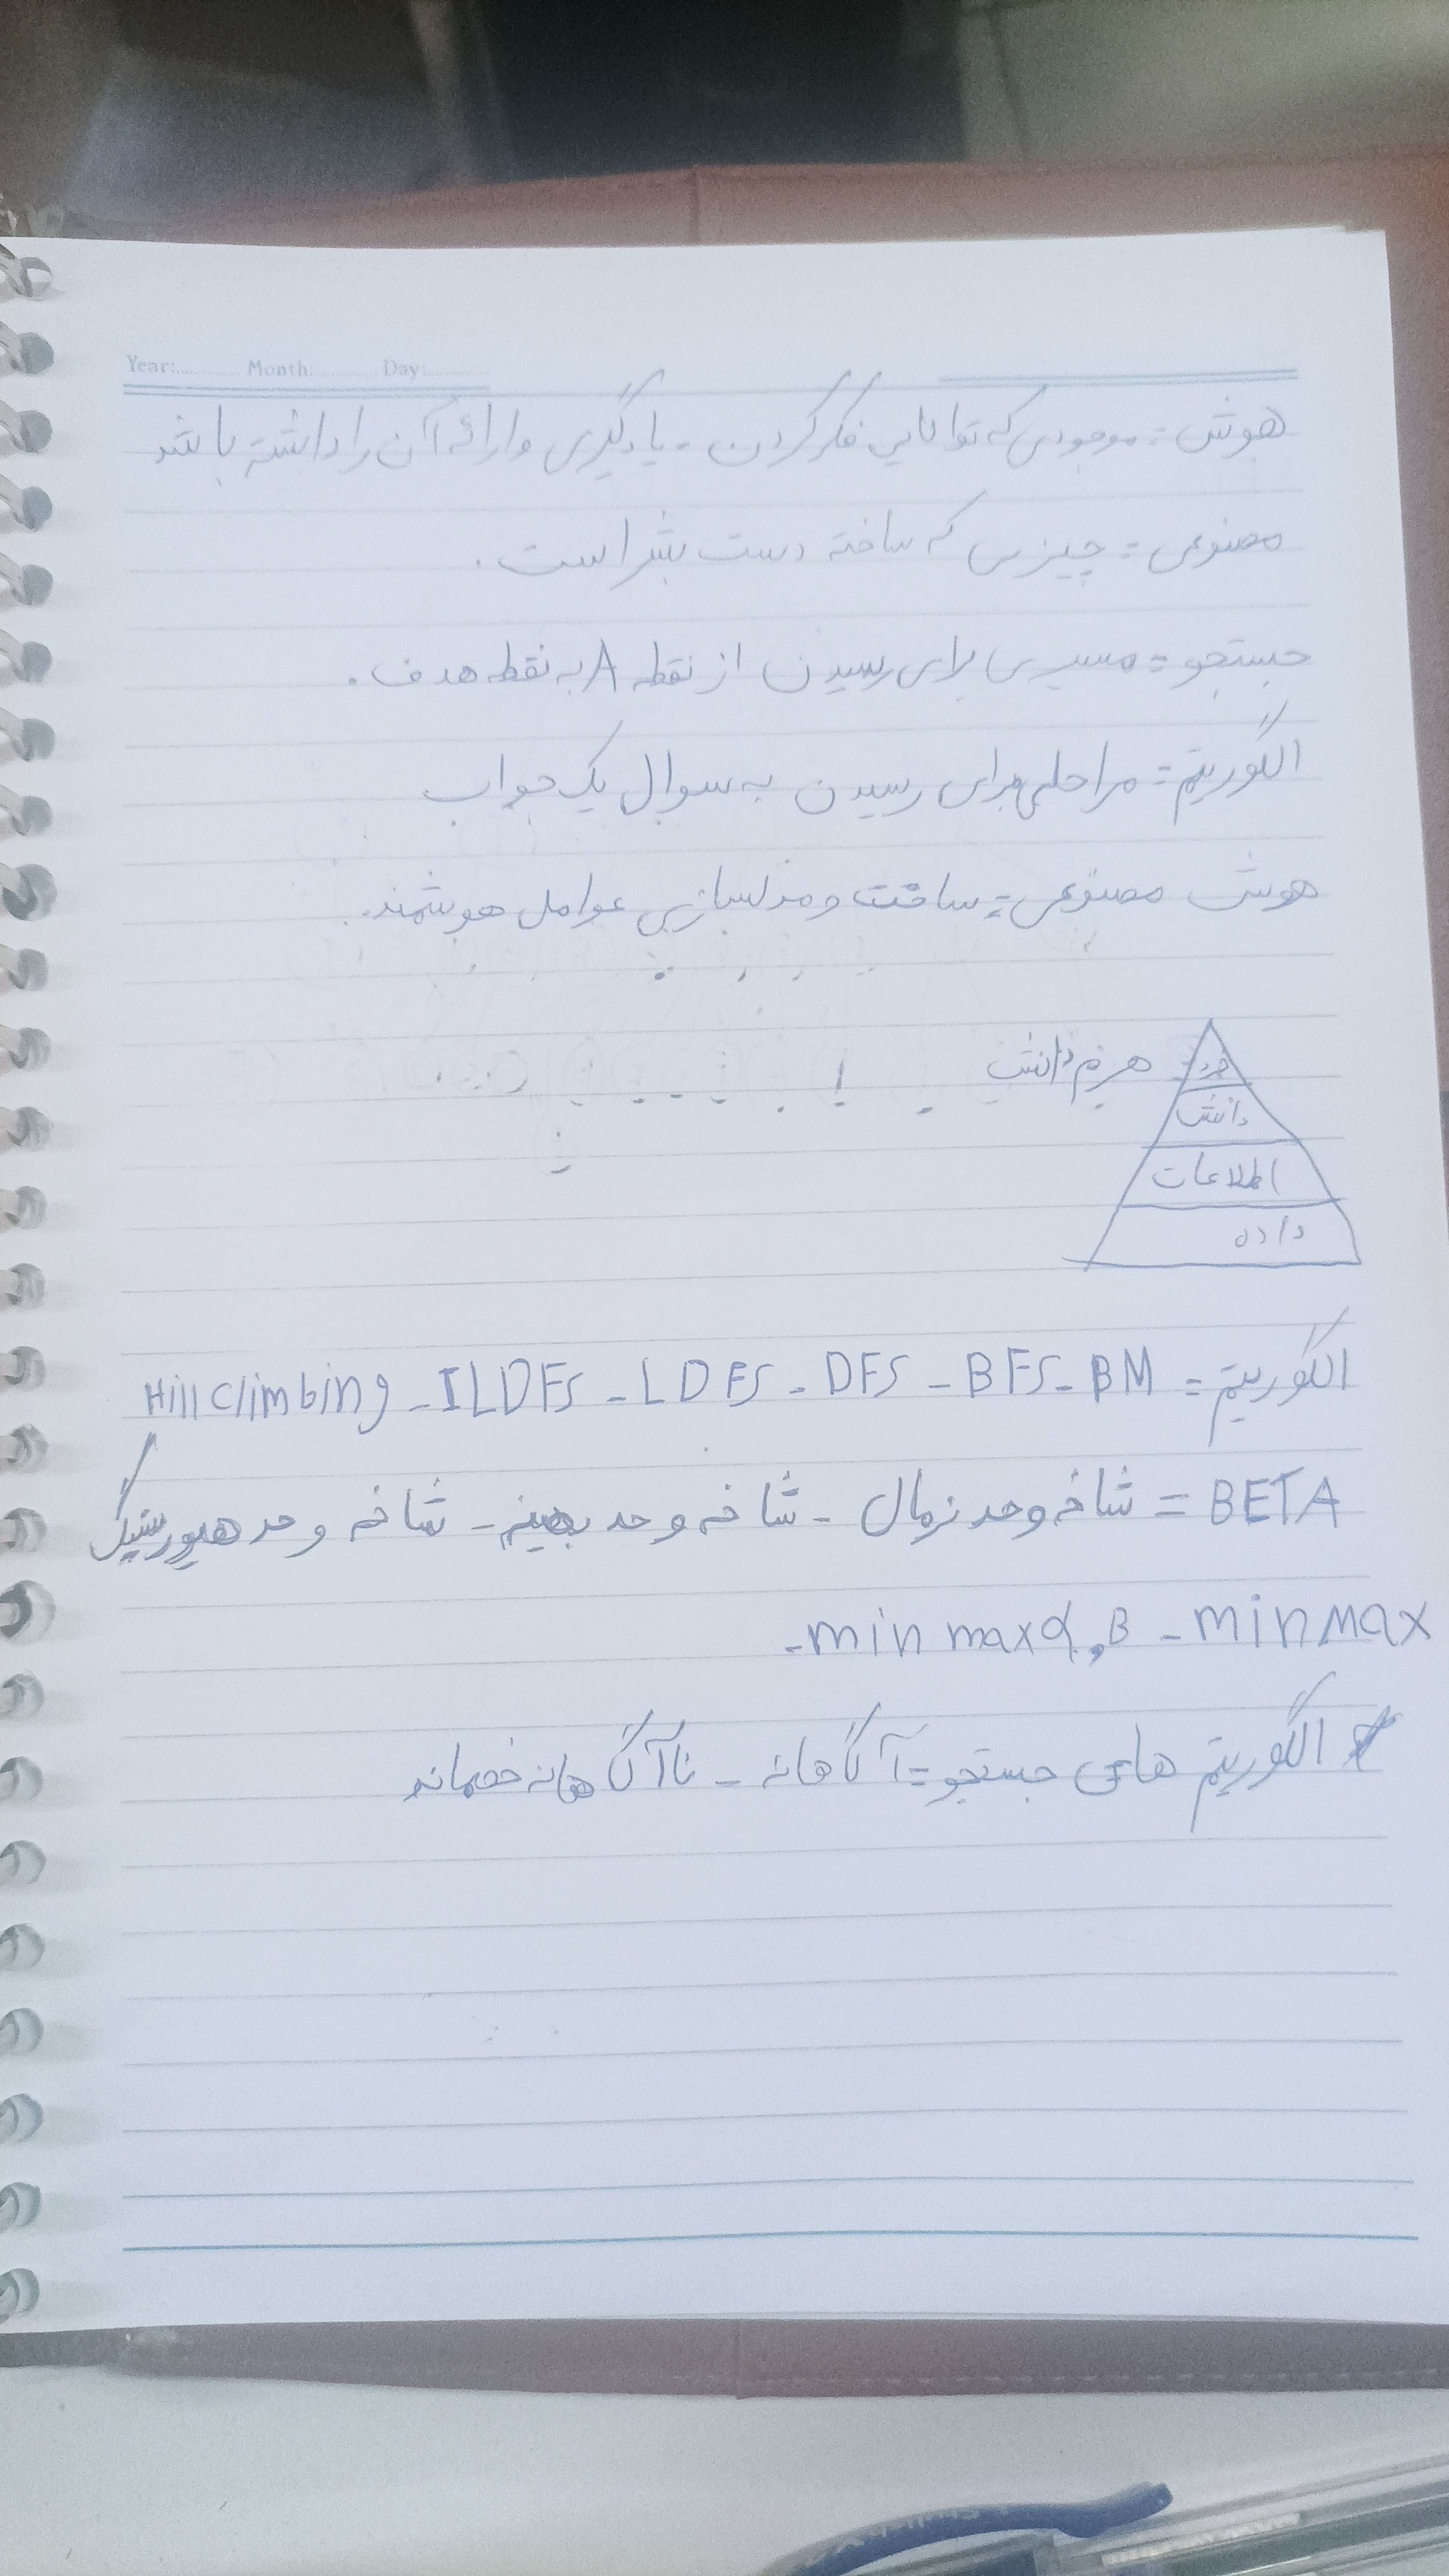 Year: Month: Day:
هوش = موجودی که توانایی فکر کردن - یادگیری و ارائه آن را داشته باشد
مصنوعی = چیزی که ساخته دست بشر است .
جستجو = مسیری برای رسیدن از نقطه A به نقطه هدف .
الگوریتم = مراحلی برای رسیدن به سوال یک جواب
هوش مصنوعی = ساخت و مدلسازی عوامل هوشمند.
خرد هرم دانش
دانش
اطلاعات
داده
الگوریتم = BM - BFS - DFS - LDFS - ILDFS - Hill Climbing
BETA = شاخه و حد نرمال - شاخه و حد بهینه - شاخه و حد هیوریستیک
minmax - minmax α,B -
الگوریتم های جستجو = آگاهانه - ناآگاهانه خصمانه